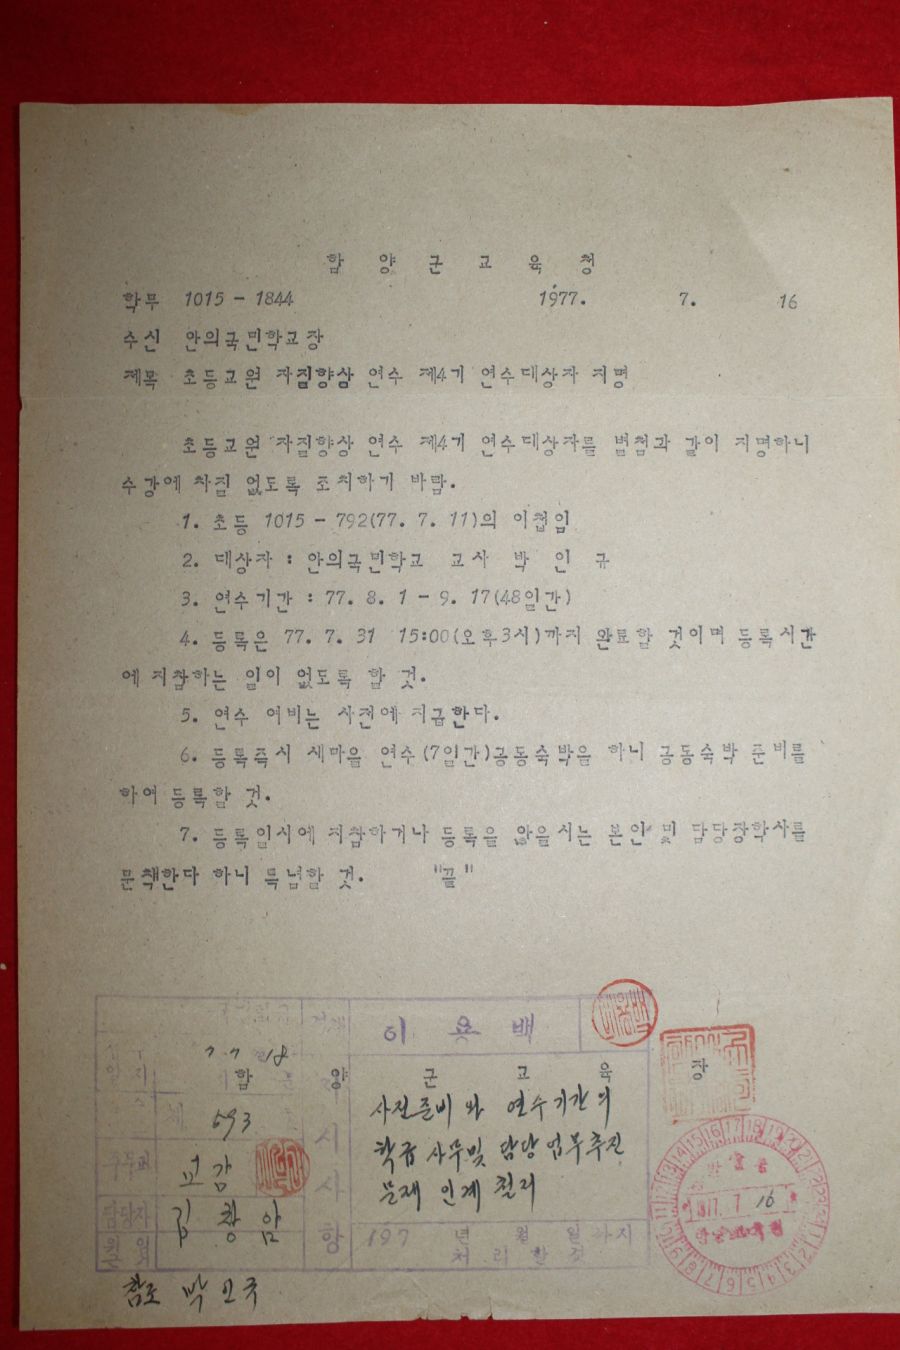 함 양 군 교 육 청
학무 1015 - 1844 1977. 7. 16
수신 안의국민학교장
제목 초등교원 자질향상 연수 제4기 연수대상자 지명
초등교원 자질향상 연수 제4기 연수대상자를 별첨과 같이 지명하니
수강에 차질 없도록 조치하기 바람.
1. 초등 1015 - 792(77. 7. 11)의 이첩임
2. 대상자 : 안의국민학교 교사 박 인 규
3. 연수기간 : 77. 8. 1 - 9. 17(48일간)
4. 등록은 77. 7. 31 15:00(오후3시)까지 완료할 것이며 등록시간
에 지참하는 일이 없도록 할 것.
5. 연수 여비는 사전에 지급한다.
6. 등록즉시 새마을 연수(7일간)공동숙박을 하니 공동숙박 준비를
하여 등록할 것.
7. 등록일시에 지참하거나 등록을 않을시는 본인 및 담당장학사를
문책한다 하니 특념할 것. "끝"
이 용 백
77 7 18
함 양 군 교 육 장
593
교감
담당자 김 창 암
지 시 사 항
사전준비와 연수기간의
학급 사무및 담당업무추진
문제 인계 철저
197 년 월 일까지
처 리 한 것
1977. 7 16
참조 박인규